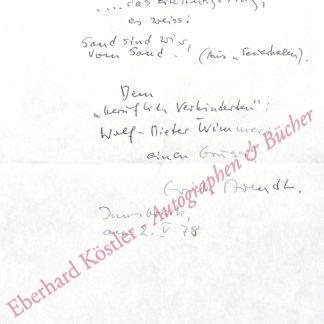 ....das
es weiss:
Sand sind wir,
vom Sand. (Aus „Feuerhalm).
Dem
„beruflich Verhinderten":
Wolf-Dieter Wimmer
einen Gruss
Erich Arendt.
Innsbruck,
am 2. V. 78
Eberhard Köstler - Autographen & Bücher